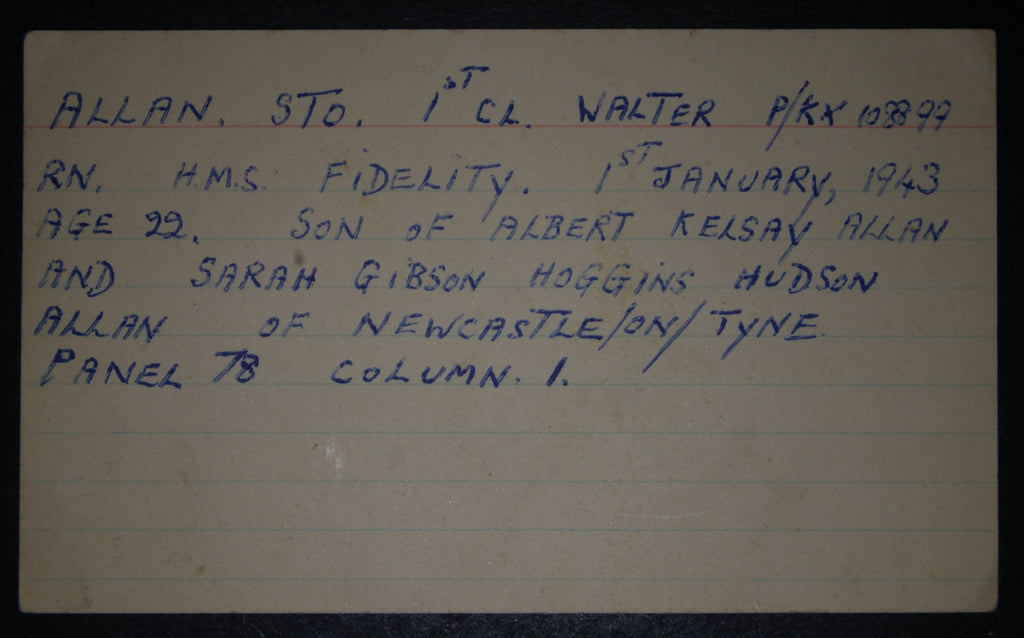 ALLAN. STO. 1ST CL. WALTER P/KX 108899
RN. H.M.S. FIDELITY. 1ST JANUARY, 1943
AGE 22. SON OF ALBERT KELSAY ALLAN
AND SARAH GIBSON HOGGINS HUDSON
ALLAN OF NEWCASTLE/ON/TYNE
PANEL 78 COLUMN. 1.